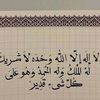 لا إله إلا الله وحده لا شريك
له الملك وله الحمد وهو على
كل شيء قدير